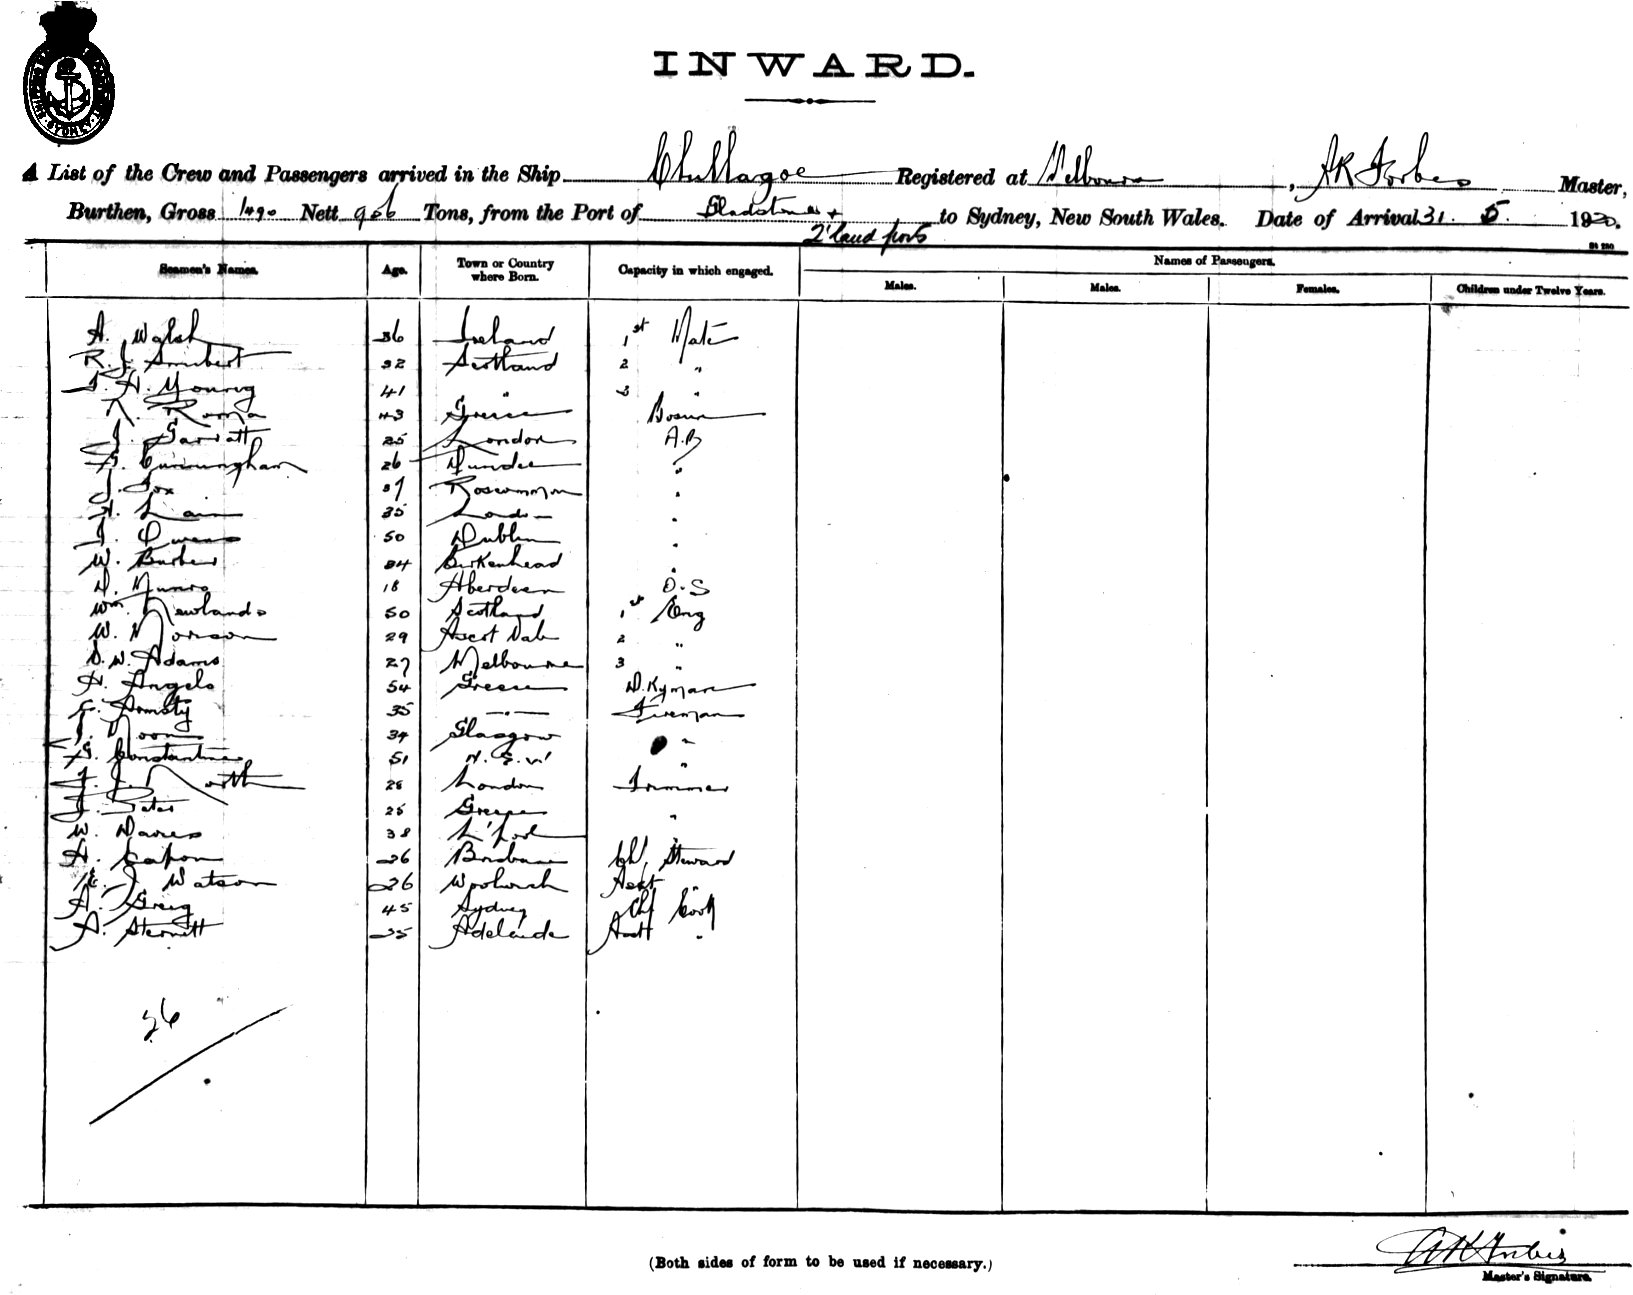 SYDNEY
INWARD.
A List of the Crew and Passengers arrived in the Ship Chillagoe Registered at Melbourne, AK Forbes Master,
Burthen, Gross 1490 Nett 906 Tons, from the Port of Gladstone + to Sydney, New South Wales. Date of Arrival 31. 5 1920.
Q'land ports
Seamen's Names. Age. Town or Country where Born. Capacity in which engaged. Names of Passengers.
Males. Males. Females. Children under Twelve Years.
A. Walsh 36 Ireland 1st Mate
R. J. 32 Scotland 2 "
J. H. Young 41 " 3 "
N. Roma 43 Greece Bosun
J. Garratt 25 London A.B
Cunningham 26 Dundee "
J. Fox 37 Roscommon "
H. Lain 35 London "
J. Owens 50 Dublin "
W. Burber 34 Birkenhead "
D. Munro 18 Aberdeen O.S
Wm. Newlands 50 Scotland 1st Eng
W. Monson 29 Ascot Vale 2 "
D. W. Adams 27 Melbourne 3 "
H. Angelo 54 Greece D.Kyman
35 -"- Fireman
J. Noon 34 Glasgow "
G. Constantine 51 N.S.W "
J. J. North 28 London Trimmer
J. Peter 25 Greece "
W. Davies 38 L'pool "
H. Capon 26 Brisbane Ch. Steward
E. J Watson 26 Woolwich Asst "
A. Greig 45 Sydney Chf Cook
A. Sternett 35 Adelaide Asst "
26
(Both sides of form to be used if necessary.)
AK Forbes
Master's Signature.